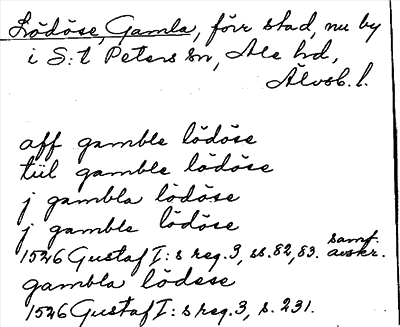 Lödöse, Gamla, förr stad, nu by
i S:t Peters sn, Ale hd,
Älvsb. l.
aff gamble lödöse
tiil gamble lödöse
j gambla lödöse
j gamble lödöse
1526 Gustaf I:s reg. 3, ss. 82, 83. samt. avskr.
gambla lödese
1526 Gustaf I:s reg. 3, s. 231.